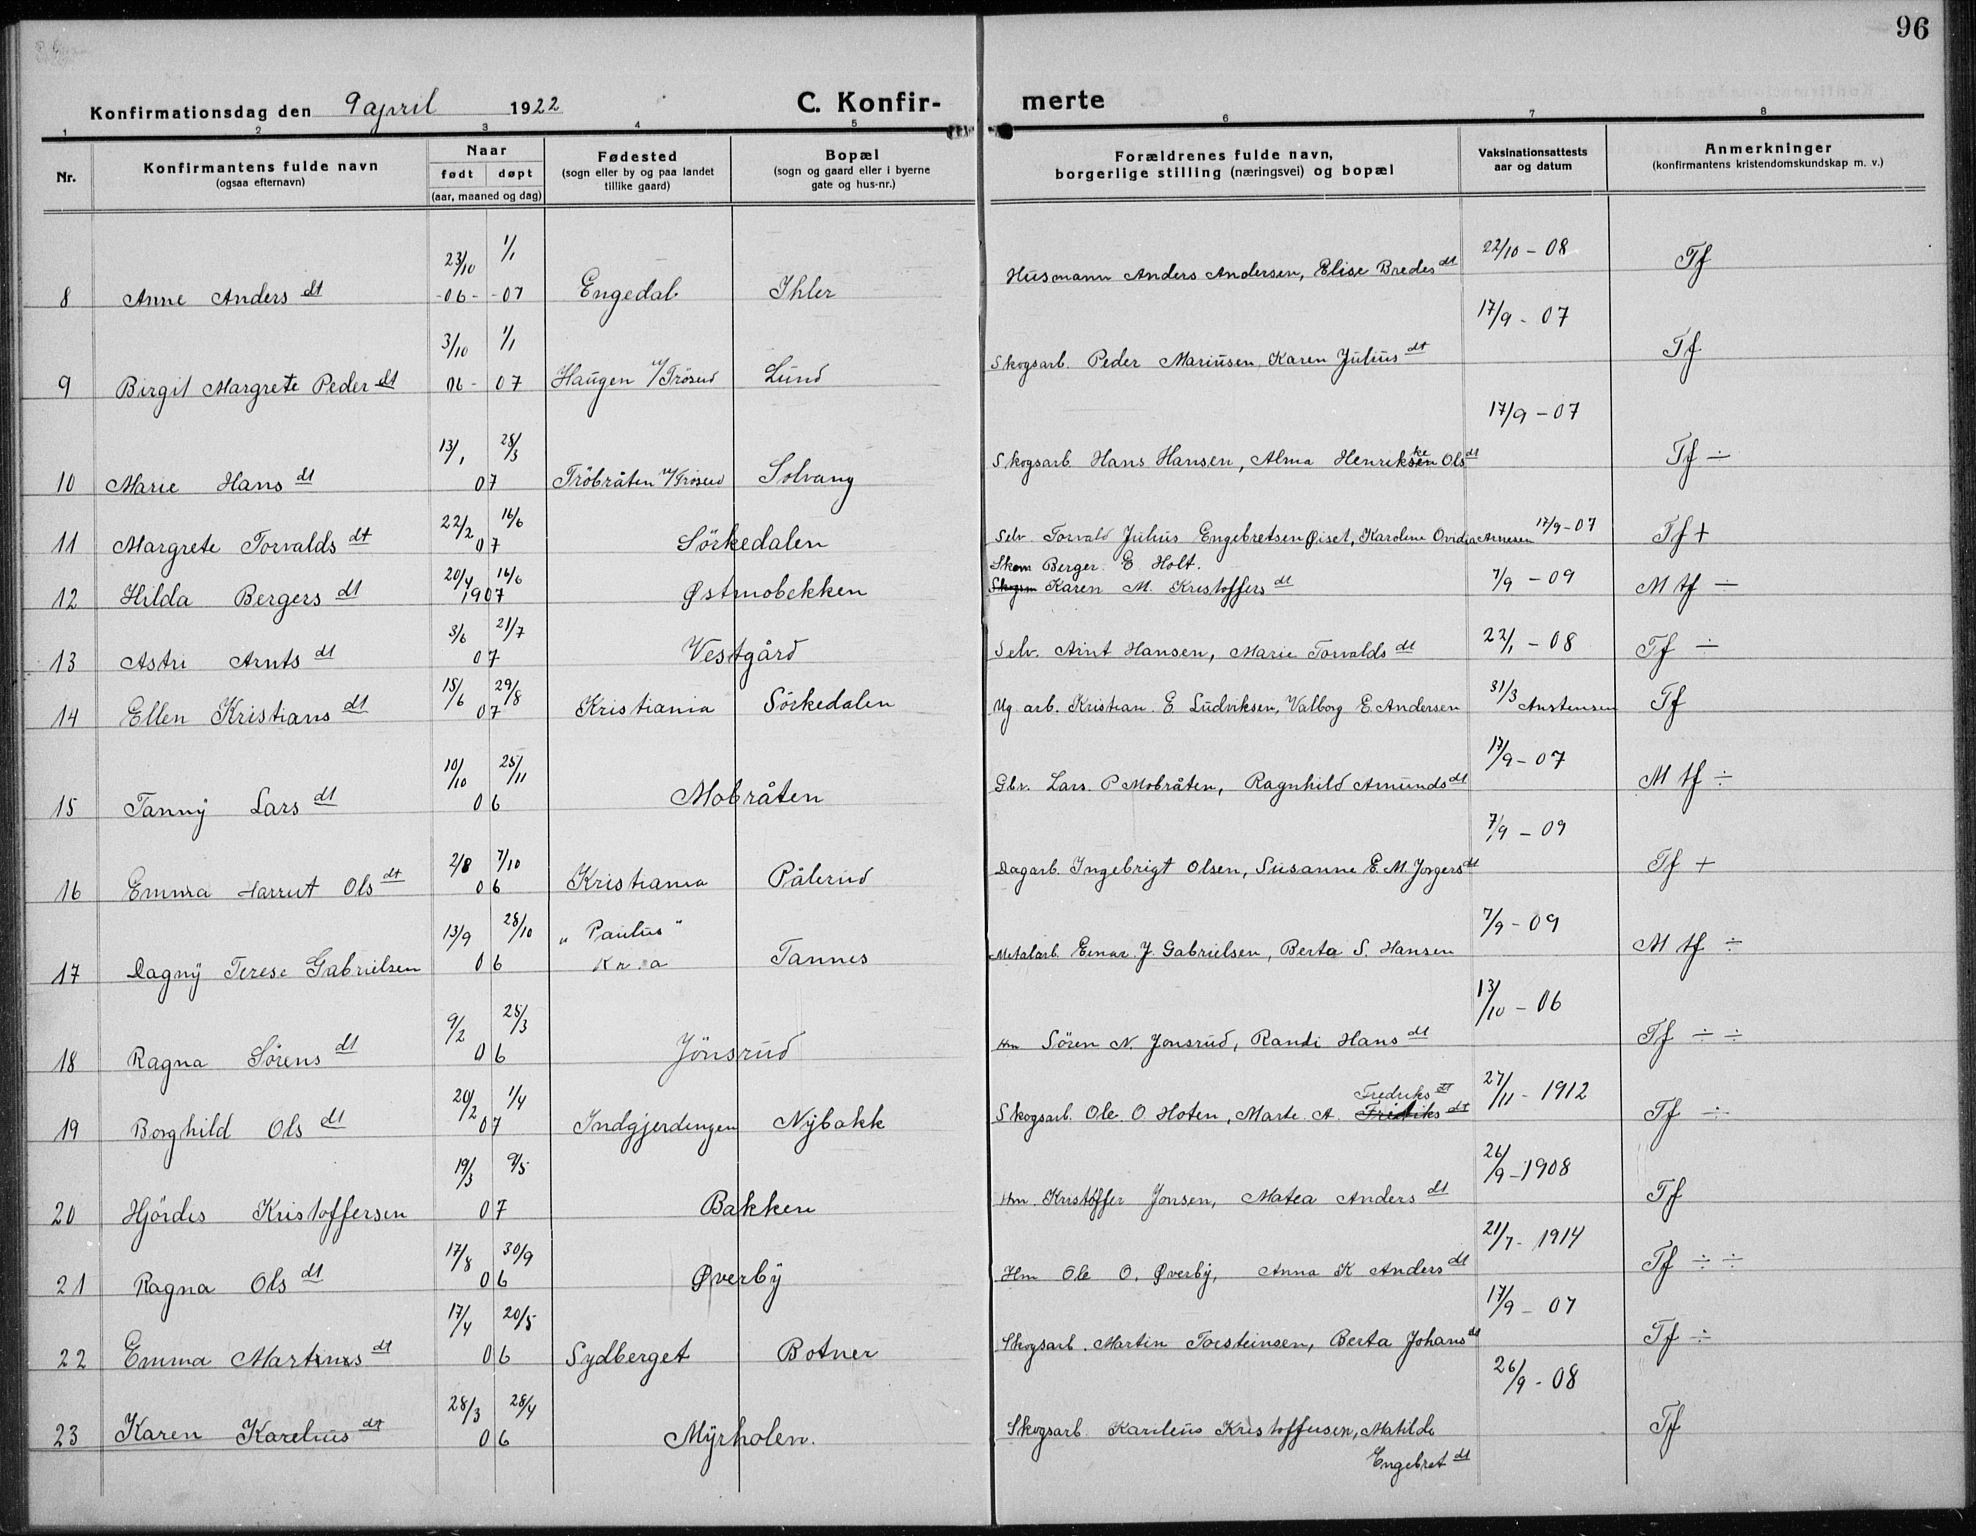 96
Konfirmationsdag den 9 april 1922 C. Konfir- merte
1 2 3 4 5 6 7 8
Nr. Konfirmantens fulde navn (ogsaa efternavn) Naar født døpt (aar, maaned og dag) Fødested (sogn eller by og paa landet tillike gaard) Bopæl (sogn og gaard eller i byerne gate og hus-nr.) Forældrenes fulde navn, borgerlige stilling (næringsvei) og bopæl Vaksinationsattests aar og datum Anmerkninger (konfirmantens kristendomskundskap m. v.)
8 Anne Anders dt 23/10 -06- 1/1 -07 Engedal Ihler Husmann Anders Andersen, Elise Bredes dt 22/10 - 08 Tf
9 Birgit Margrete Peder dt 3/10 06- 1/1 07 Haugen v/Trösud Lund Skogsarb. Peder Mariusen, Karen Julius dt 17/9 - 07 Tf
10 Marie Hans dt 13/1 28/3 07 Tröbråten v/Trösud Solvang Skogsarb. Hans Hansen, Alma Henrikke Ols dt 17/9 - 07 Tf ÷
11 Margrete Torvalds dt 22/2 16/6 07 Sörkedalen Selv. Torvald Julius Engebretsen Øiset, Karoline Ovidia Arnesen 17/9 - 07 Tf +
12 Hilda Bergers dt 20/4 16/6 1907 Østmobekken Skom Berger. E Holt.
Skogsm Karen M. Kristoffers dt 7/9 - 09 M tf ÷
13 Astri Arnts dt 3/6 21/7 07 Vestgård Selv. Arnt Hansen, Marie Torvalds dt 22/1 - 08 Tf ÷
14 Ellen Kristians dt 15/6 29/8 07 Kristiania Sörkedalen Ug arb. Kristian. E Ludviksen, Valborg E. Andersen 31/3 Anstensen Tf
15 Fanny Lars dt 10/10 25/11 06 Mobråten Gbr. Lars. P Mobråten, Ragnhild Amunds dt 17/9 - 07 M tf ÷
16 Emma Harriet Ols dt 2/8 7/10 06 Kristiania Pålerud Dagarb. Ingebrigt Olsen, Susanne E. M. Jorgers dt 7/9 - 09 Tf +
17 Dagny Terese Gabrielsen 13/9 28/10 06 "Paulus" Kr.a Tannes Metalarb. Einar. J. Gabrielsen, Berta S. Hansen 7/9 - 09 M tf ÷
18 Ragna Sörens dt 9/2 25/3 06 Jönsrud Hm Sören N. Jonsrud, Randi Hans dt 13/10 - 06 Tf ÷ ÷
19 Borghild Ols dt 20/2 1/4 07 Indgjerdingen Nybakk Skogsarb. Ole. O. Hoten, Marte. A. Fredriks dt Fredriks dt 27/11 - 1912 Tf ÷
20 Hjördis Kristoffersen 19/3 9/5 07 Bakken Hm. Kristoffer Jonsen, Matea Anders dt 26/9 - 1908 Tf
21 Ragna Ols dt 17/8 30/9 06 Øverby Hm Ole O. Øverby, Anna K Anders dt 21/7 - 1914 Tf ÷ ÷
22 Emma Martins dt 17/4 20/5 06 Sydberget Botner Skogsarb. Martin Torsteinsen, Berta Johans dt 17/9 - 07 Tf ÷
23 Karen Karelius dt 28/3 28/4 06 Myrholen. Skogsarb. Karelius Kristoffersen, Matilde
Engebret dt 26/9 - 08 Tf